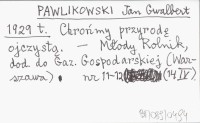 PAWLIKOWSKI Jan Gwalbert
1929 t. Chrońmy przyrodę
ojczystą. — Młody Rolnik,
dod. do Gaz. Gospodarskiej (War-
szawa) • nr 11-12 (14 IV)